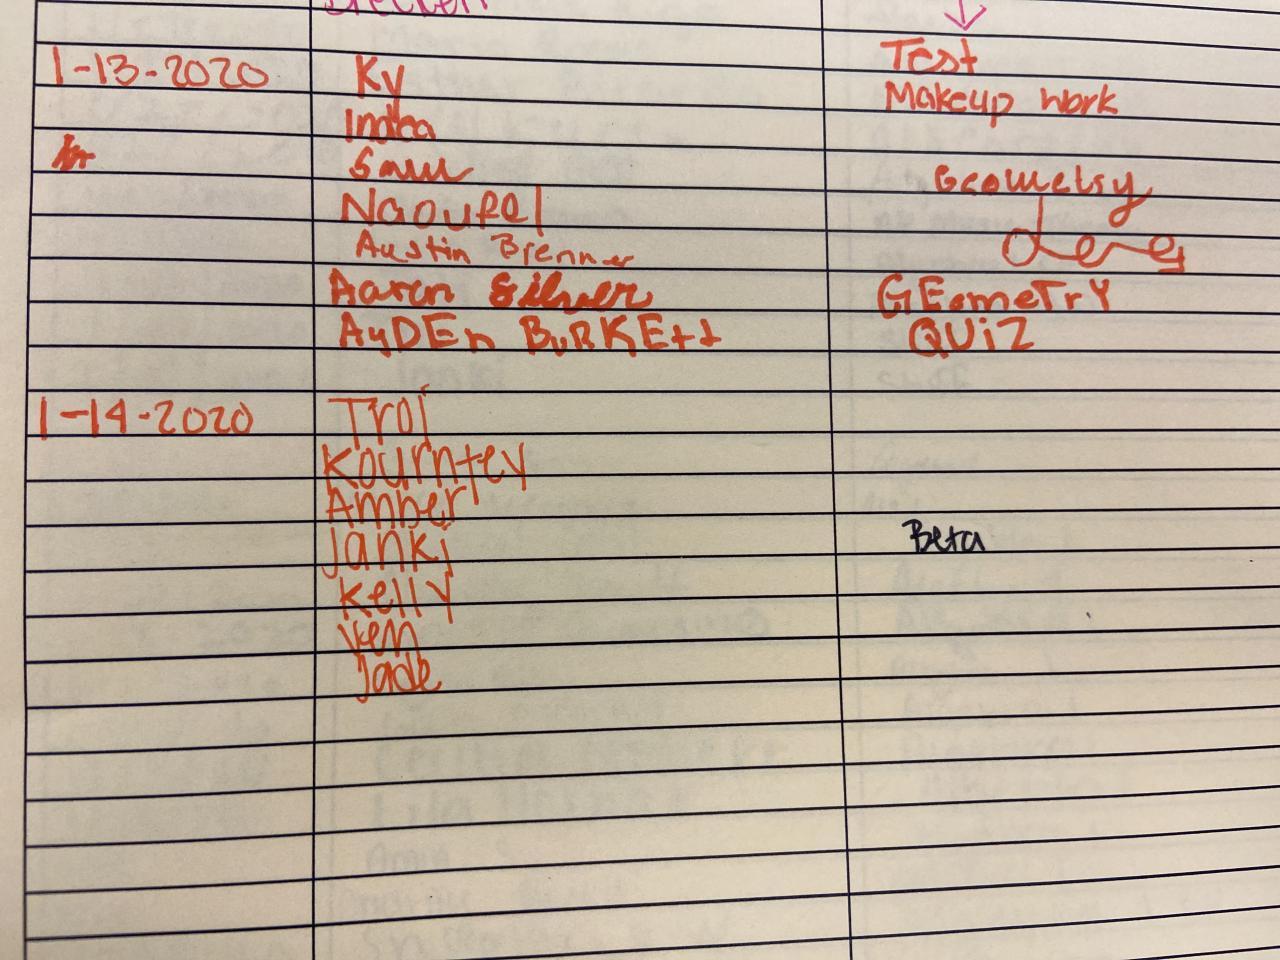 1-13-2020 Ky Test
India Makeup Work
Saul Geometry
Naoufel
Austin Brenner
Aaron Silver GEomeTrY
AyDEn BuRKEtt QUiZ
1-14-2020 Troi
Kourntey
Amber
Janki Beta
Kelly
Ken
Jade